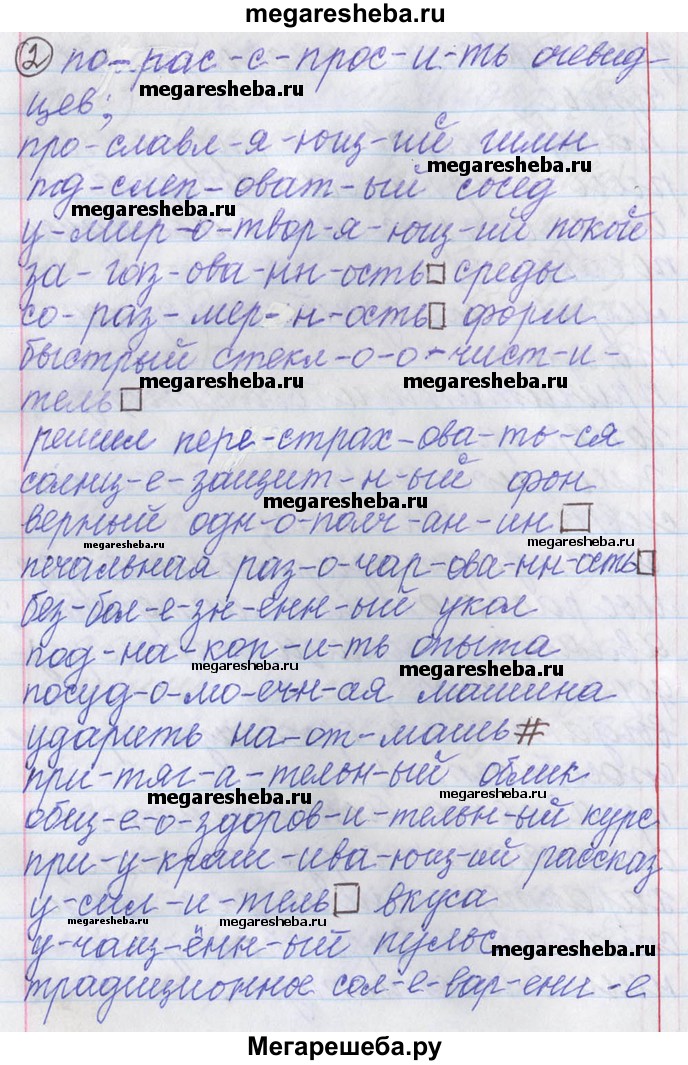 megaresheba.ru
② по-рас-с-прос-и-ть очевид-
megaresheba.ru
цев;
про-славл-я-ющ-ий гимн
megaresheba.ru
под-слеп-оват-ый сосед
megaresheba.ru
у-мир-о-твор-я-ющ-ий покой
за-газ-ова-нн-ость□ среды
megaresheba.ru
со-раз-мер-н-ость□ форм
megaresheba.ru
быстрый стекл-о-о-чист-и-
megaresheba.ru megaresheba.ru
тель□
решил пере-страх-ова-ть-ся
солнц-е-защит-н-ый фон
megaresheba.ru
верный одн-о-полч-ан-ин□
megaresheba.ru megaresheba.ru
печальная раз-о-чар-ова-нн-ость□
без-бол-е-зн-енн-ый укол
под-на-коп-и-ть опыта
megaresheba.ru megaresheba.ru
посуд-о-мо-еч-н-ая машина
ударить на-от-машь#
при-тяг-а-тельн-ый облик
megaresheba.ru megaresheba.ru
общ-е-о-здоров-и-тельн-ый курс
при-у-краш-ива-ющ-ий рассказ
у-сил-и-тель□ вкуса
megaresheba.ru megaresheba.ru
у-чащ-ённ-ый пульс
megaresheba.ru
традиционное сол-е-вар-ени-е
Мегарешеба.ру